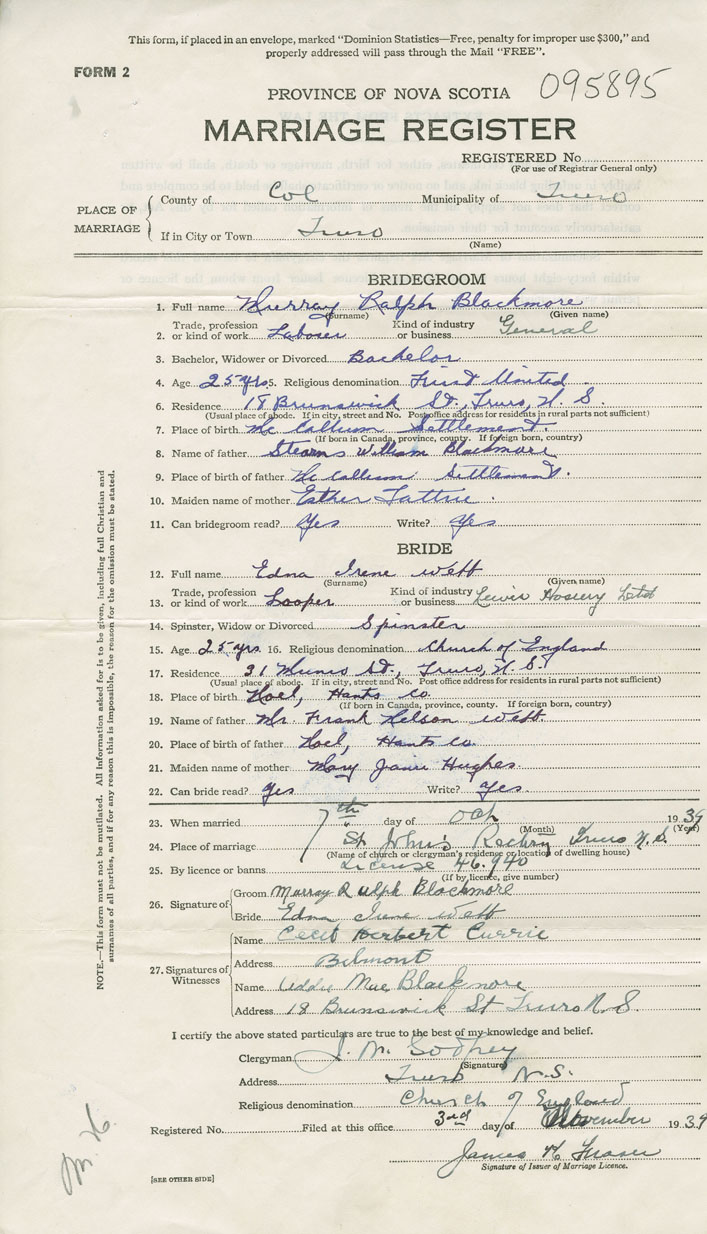 This form, if placed in an envelope, marked "Dominion Statistics—Free, penalty for improper use $300," and
properly addressed will pass through the Mail "FREE".
FORM 2
PROVINCE OF NOVA SCOTIA 095895
MARRIAGE REGISTER
REGISTERED No.
(For use of Registrar General only)
PLACE OF MARRIAGE
County of Col Municipality of Truro
If in City or Town Truro
(Name)
BRIDEGROOM
1. Full name Murray Ralph Blackmore
(Surname) (Given name)
2. Trade, profession or kind of work Laborer Kind of industry or business General
3. Bachelor, Widower or Divorced Bachelor
4. Age 25 yrs 5. Religious denomination First United
6. Residence 18 Brunswick St., Truro, N. S.
(Usual place of abode. If in city, street and No. Post office address for residents in rural parts not sufficient)
7. Place of birth Mc Callum Settlement.
(If born in Canada, province, county. If foreign born, country)
8. Name of father Stearns William Blackmore
9. Place of birth of father Mc Callum Settlement.
10. Maiden name of mother Esther Tattrie.
11. Can bridegroom read? Yes Write? Yes
BRIDE
12. Full name Edna Irene Webb
(Surname) (Given name)
13. Trade, profession or kind of work Looper Kind of industry or business Lewis Hosiery Ltd
14. Spinster, Widow or Divorced Spinster
15. Age 25 yrs. 16. Religious denomination Church of England
17. Residence 31 St., Truro, N. S.
(Usual place of abode. If in city, street and No. Post office address for residents in rural parts not sufficient)
18. Place of birth Noel, Hants Co.
(If born in Canada, province, county. If foreign born, country)
19. Name of father Mr. Frank Nelson Webb
20. Place of birth of father Noel, Hants Co.
21. Maiden name of mother Mary Janie Hughes.
22. Can bride read? Yes Write? Yes
23. When married 7th day of Oct 1939
(Month) (Year)
24. Place of marriage St John's Rectory Truro N.S.
(Name of church or clergyman's residence or location of dwelling house)
25. By licence or banns License 46.940
(If by licence, give number)
26. Signature of
Groom Murray Ralph Blackmore
Bride Edna Irene Webb
27. Signatures of Witnesses
Name Cecil Herbert Currie
Address Belmont
Name Addie Mae Blackmore
Address 18 Brunswick St Truro N.S.
I certify the above stated particulars are true to the best of my knowledge and belief.
Clergyman J. M. Godfrey
(Signature)
Address Truro N.S.
Religious denomination Church of England
Registered No. Filed at this office 3rd day of November 1939
James H. Fraser
Signature of Issuer of Marriage Licence.
[SEE OTHER SIDE]
NOTE.—This form must not be mutilated. All information asked for is to be given, including full Christian and
surnames of all parties, and if for any reason this is impossible, the reason for the omission must be stated.